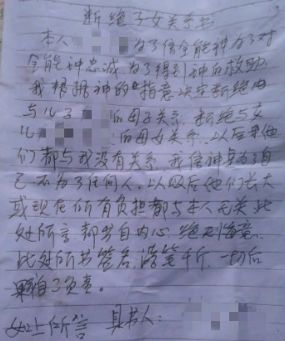 断绝子女关系书
本人 为了信全能神为了对
全能神忠诚为了得到神的救助
我根据神的旨意决定断绝由
与儿子 的母子关系，断绝与女
儿 的母女关系，以后他
们都与我没有关系，我信神是为了自
己不为了任何人，以及后他们长大
或现在所有负担都与本人无关此
处所言都出自内心，绝不悔意，
此处所书签名，落笔千斤，一切后
果自己负责。
如上所言 具书人：